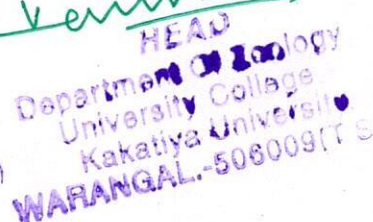 HEAD
Department Of Zoology
University College
Kakatiya University
)
WARANGAL.-506009(T S